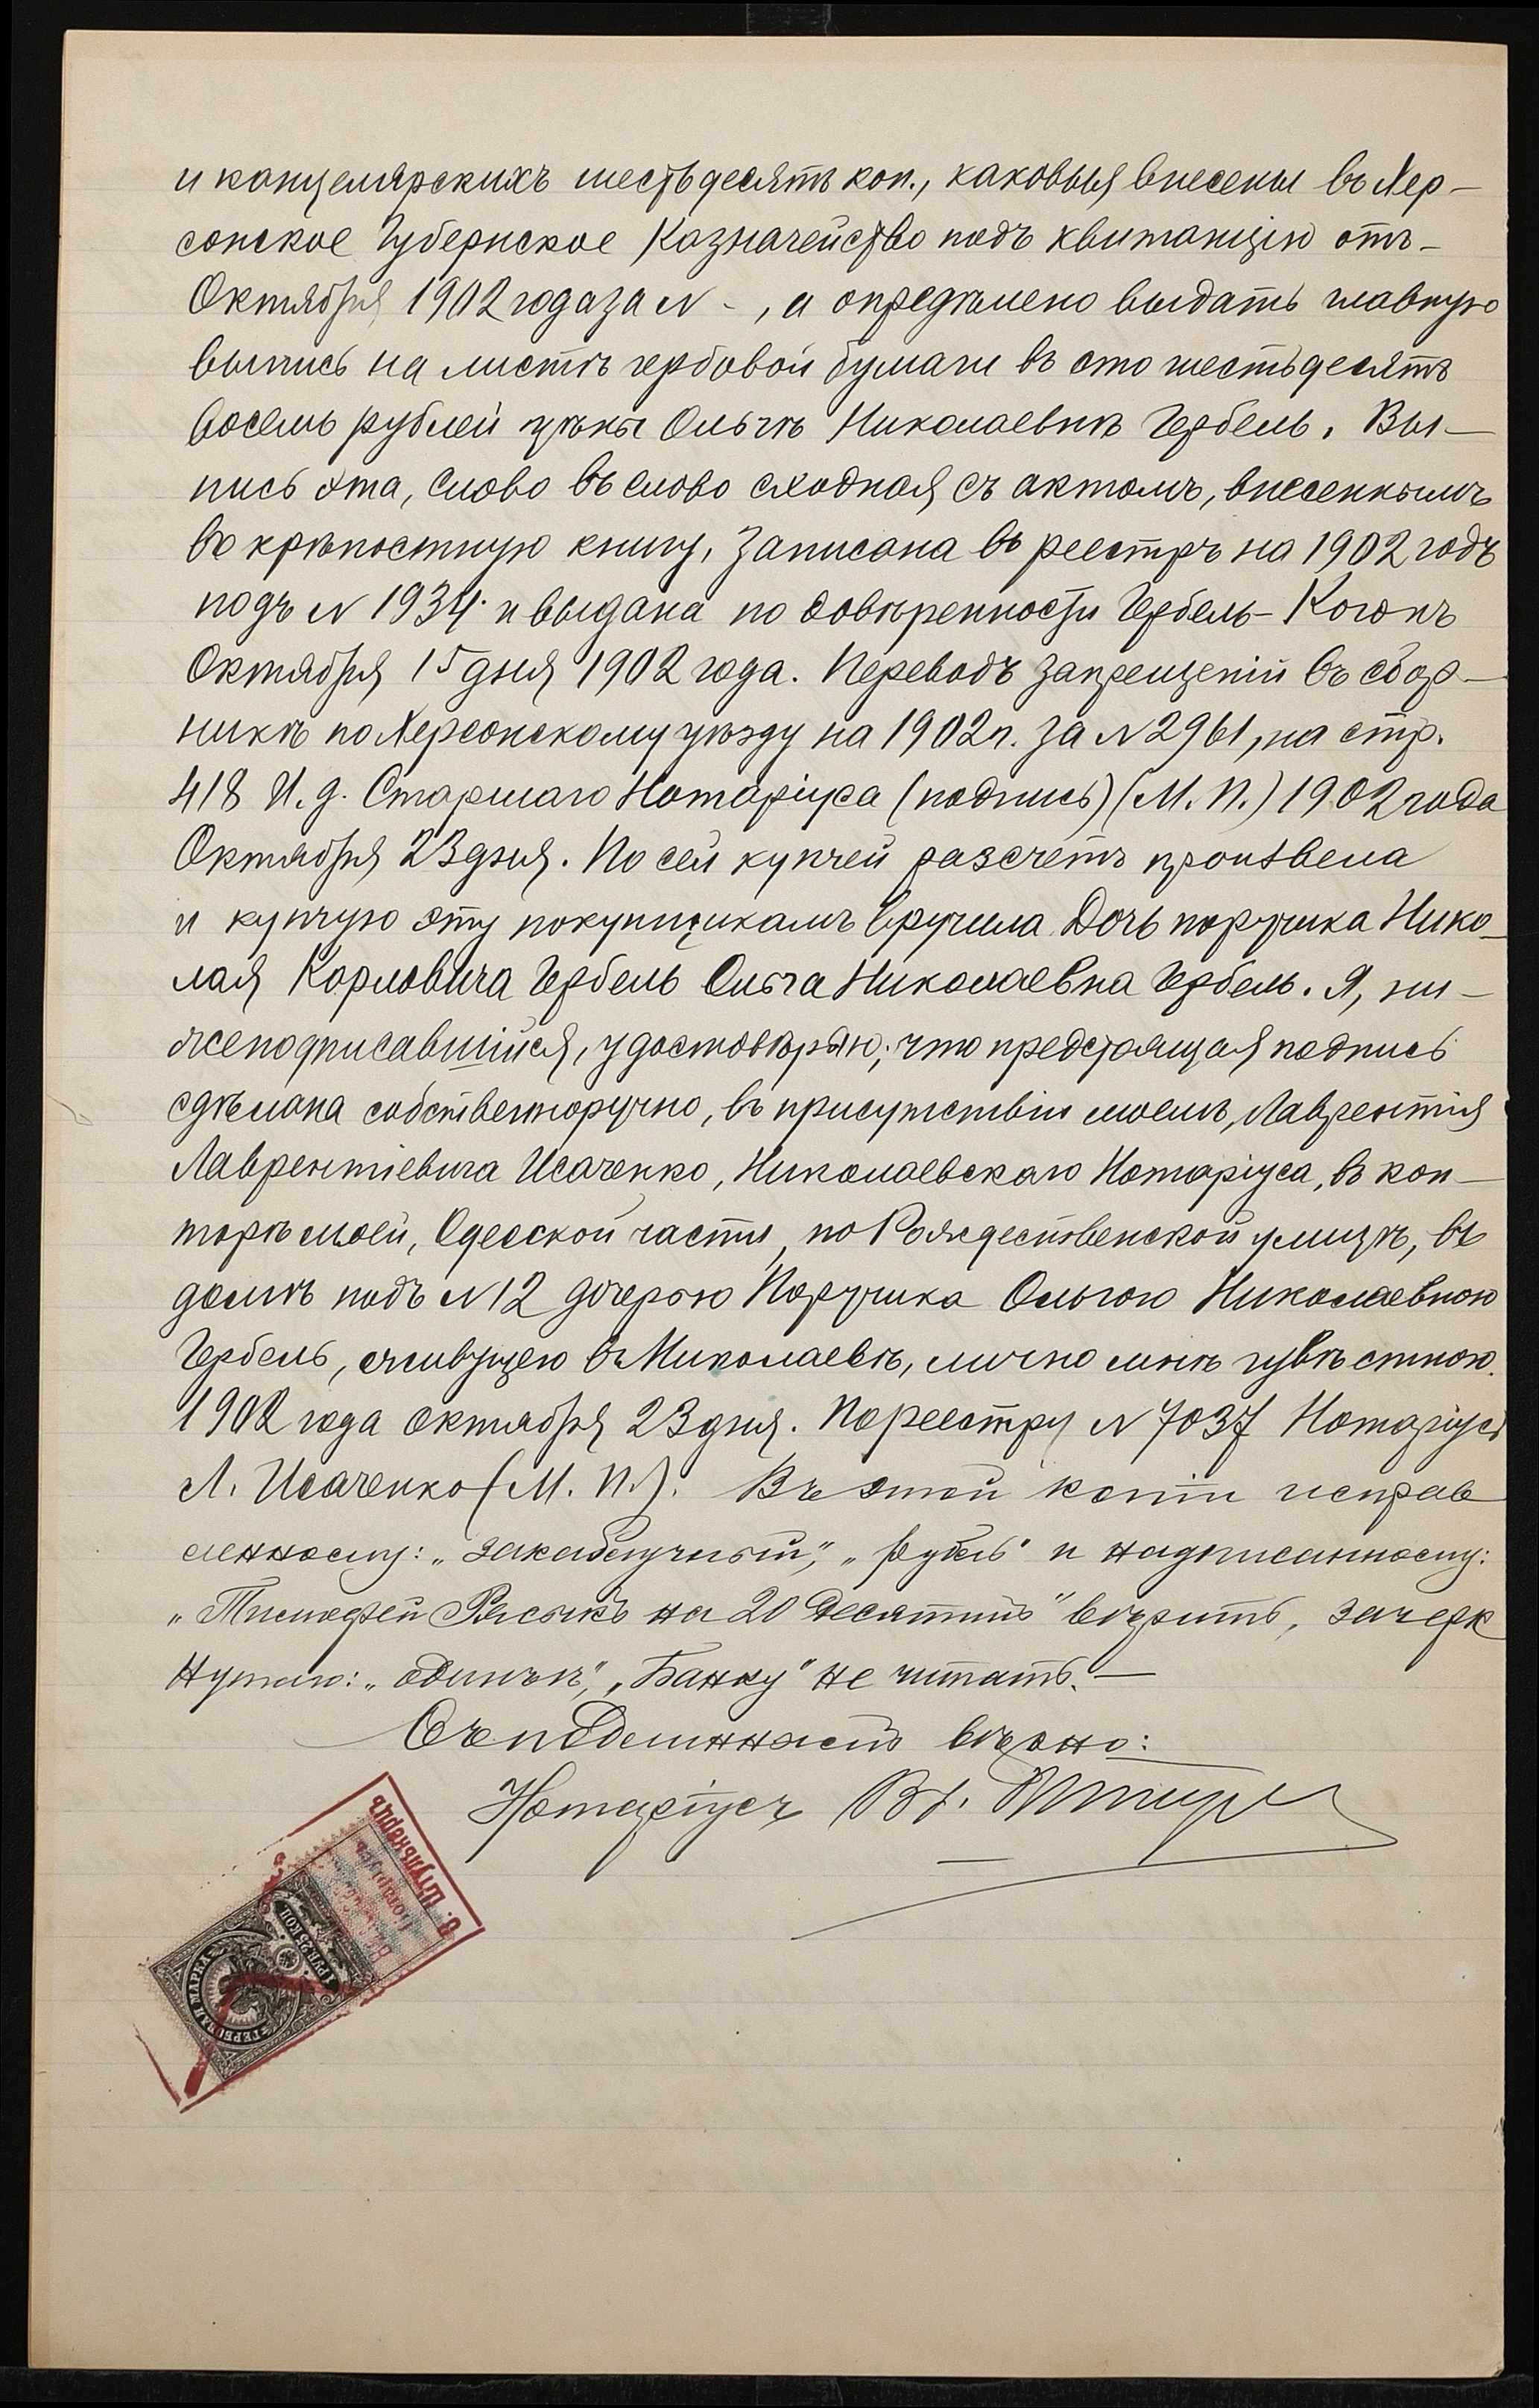 и канцелярскихъ шестьдесятъ коп., каковыя внесены въ Хер-
сонское Губернское Казначейство подъ квитанцію отъ-
Октября 1902 года за N -, а опредѣлено выдать главную
выпись на листѣ гербовой бумаги въ сто шестьдесятъ
восемь рублей цѣны Ольгѣ Николаевнѣ Гербель. Вы-
пись эта, слово въ слово сходная съ актомъ, внесеннымъ
въ крѣпостную книгу, записана въ реестръ на 1902 годъ
подъ N 1934 и выдана по довѣренности Гербель-
Октября 15 дня 1902 года. Переводъ запрещеній въ сбор-
никѣ по Херсонскому уѣзду на 1902 г. за N 2961, на стр.
418 И. д. Старшаго Нотаріуса (подпись) (М. П.) 1902 года
Октября 23 дня. По сей купчей разсчетъ произвела
и купчую эту покупщикамъ вручила Дочь поручика Нико-
лая Карловича Гербель Ольга Николаевна Гербель. Я, ни-
жеподписавшійся, удостовѣряю, что предстоящая подпись
сдѣлана собственноручно, въ присутствіи моемъ, Лаврентія
Лаврентіевича Исаченко, Николаевскаго Нотаріуса, въ кон-
торѣ моей, Одесской части, по Рождественской улицѣ, въ
домѣ подъ N 12 дочерью Поручика Ольгою Николаевною
Гербель, живущею въ Николаевѣ, лично мнѣ извѣстною.
1902 года октября 23 дня. По реестру N 7037 Нотаріусъ
Л. Исаченко (М. П.). Въ этой копіи исправ
ленному: „ „рубль" и надписанному:
„Тимофей на 20 десятинъ" вѣрить, зачерк
нутаго: „ „Банку" не читать. —
Съ подлиннымъ вѣрно:
Нотаріусъ Вл.
ГЕРБОВАЯ МАРКА
1 РУБ. 25 КОП.